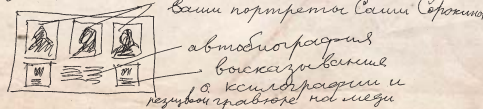 Ваши портреты Саши Сорокина
автобиография
высказывания
о ксилографии и
резцовой гравюре на меди